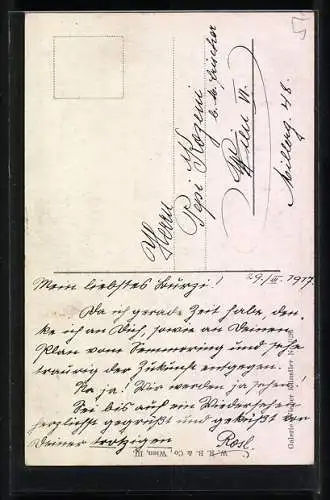 Herrn
Pepi Kozeni
Wien VI.
Millerg. 48.
29./III. 1917.
Mein liebstes Burzi!
Da ich gerade Zeit habe, den-
ke ich an Dich, sowie an Deinen
Plan vom Semmering und sehe
traurig der Zukunft entgegen.
Na ja! Wir werden ja sehen!
Sei bis auf ein Wiedersehen
herzlichst gegrüßt und geküßt von
Deiner trotzigen Rosl.
W. R. B. & Co, Wien, III.
Galerie Wiener Künstler